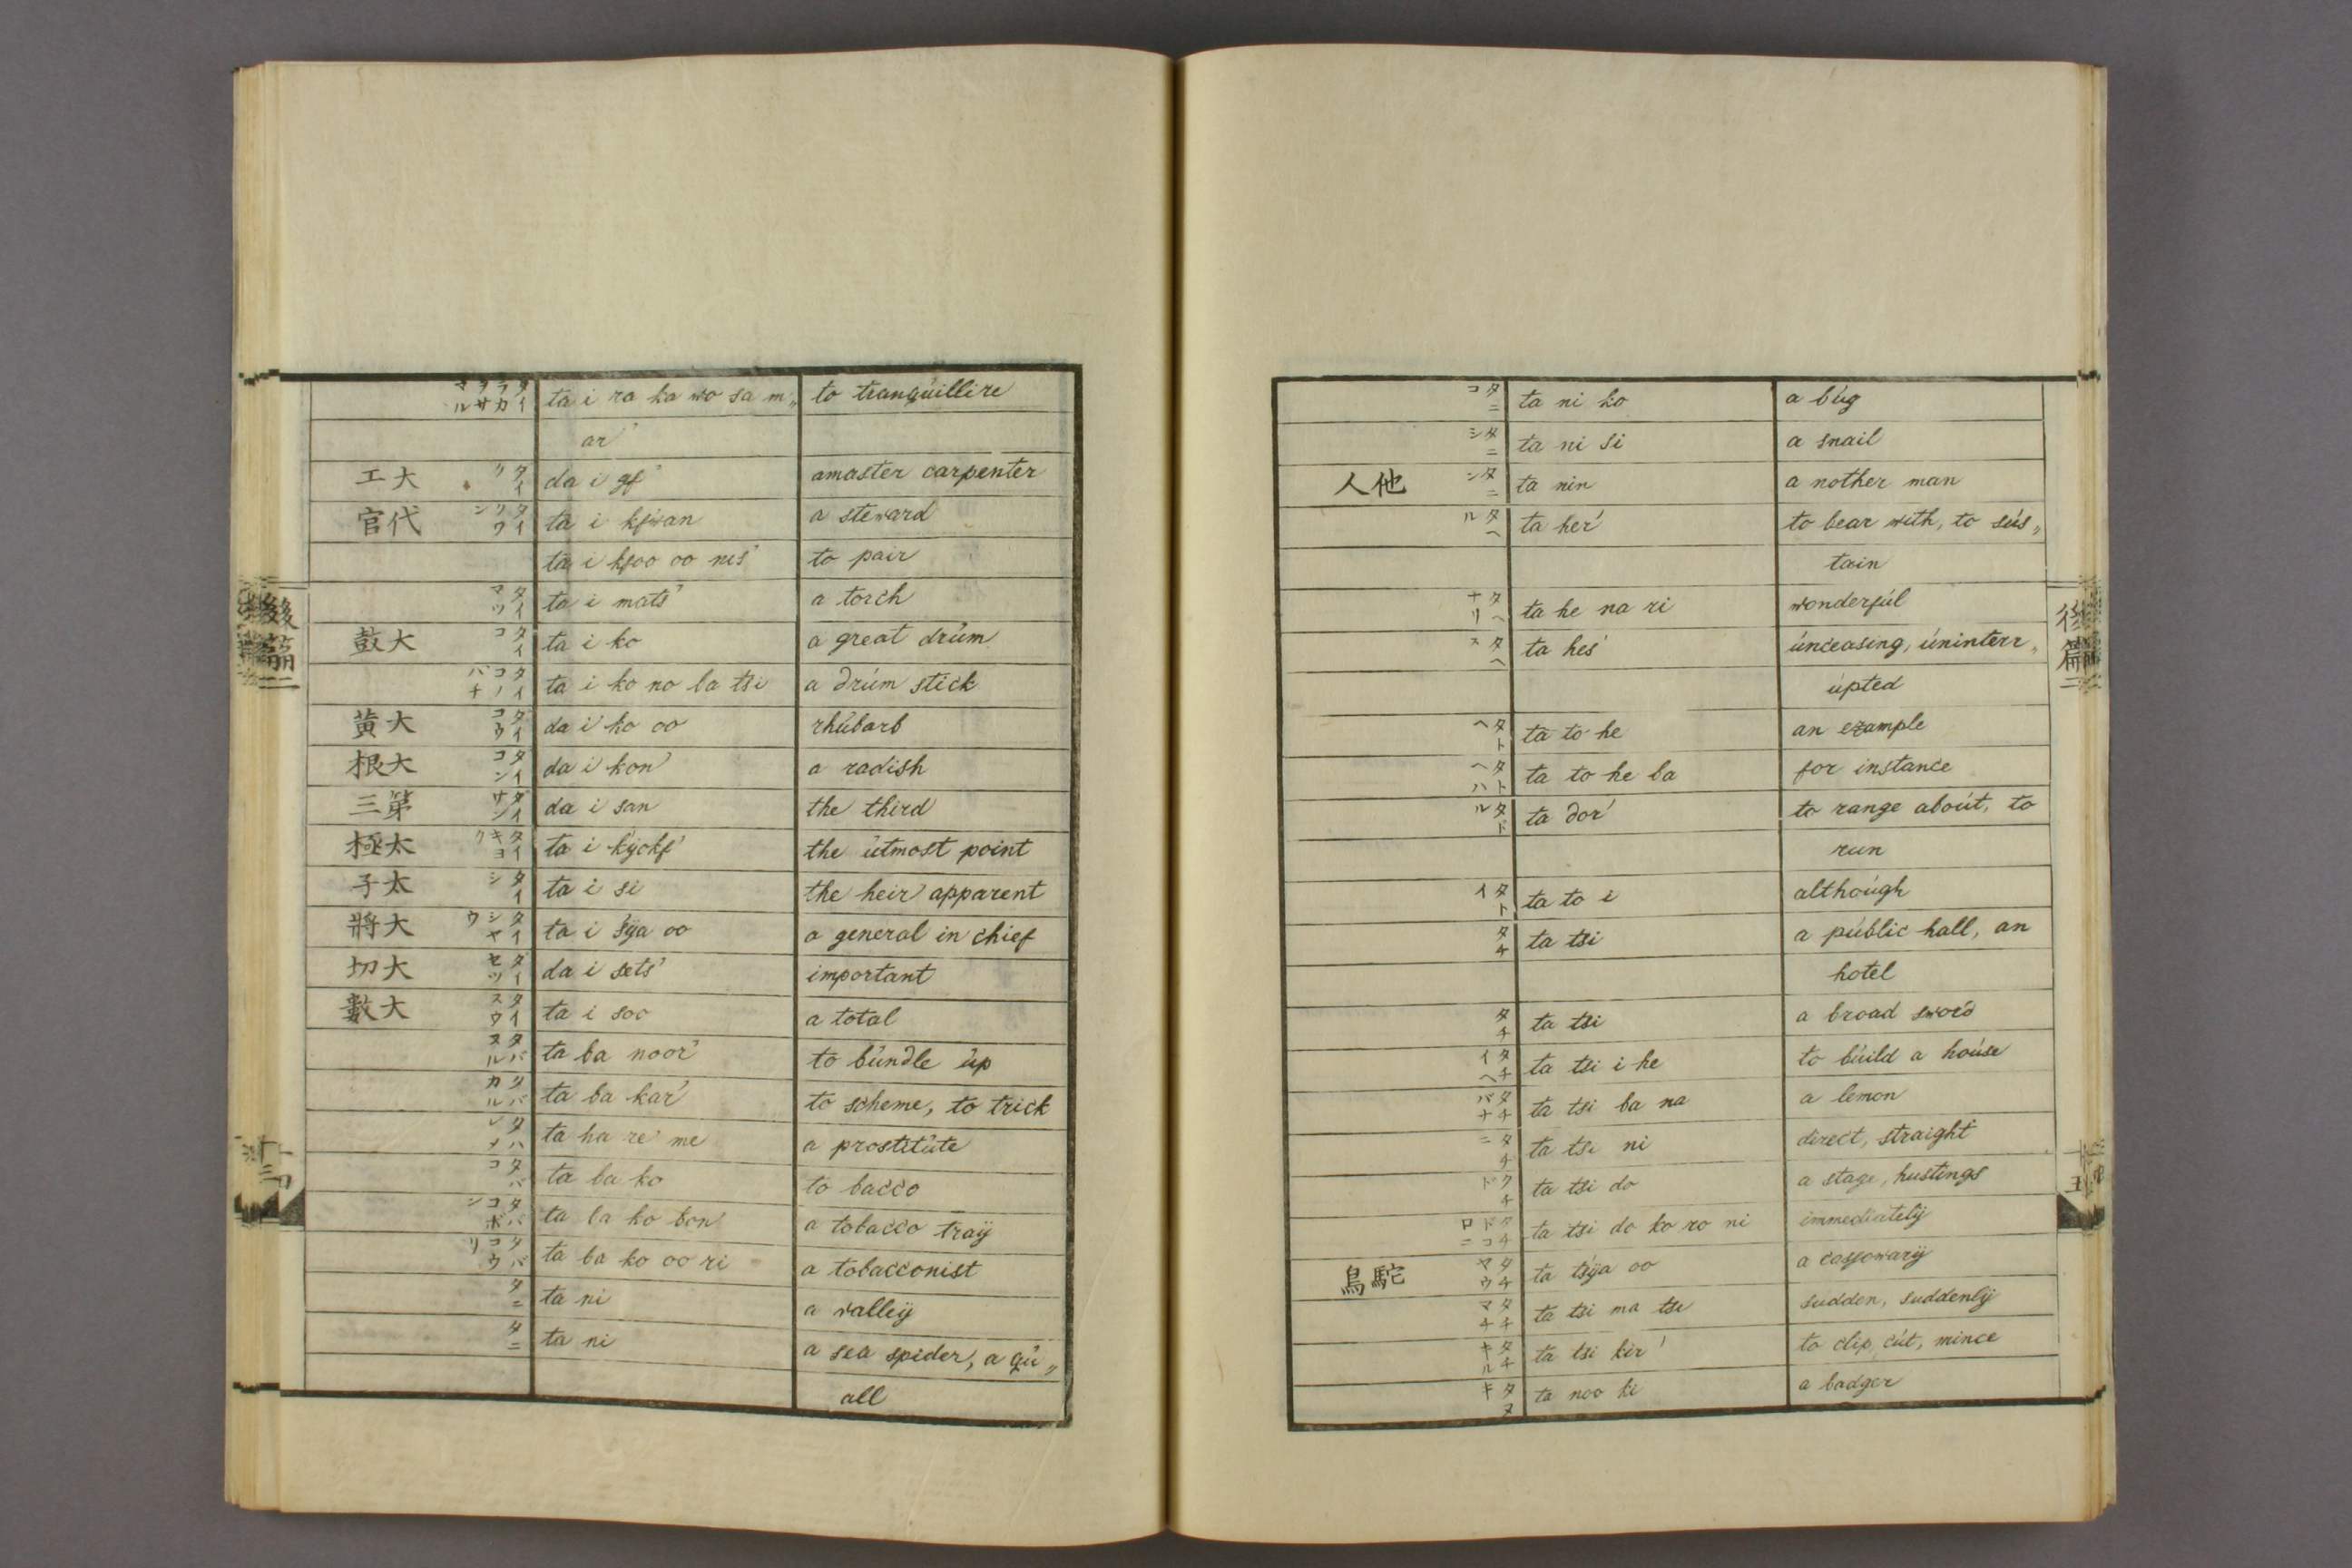 タイラカヲサマル ta i ra ka wo sa m„ to tranqúillire
ar'
工大 タイク da i gf' amaster carpenter
官代 タイクワン ta i kfwan a steward
ta i kfoo oo nis' to pair
タイマツ ta i mats' a torch
鼓大 タイコ ta i ko a great drúm
タイコノバチ ta i ko no ba tsi a drúm stick
黄大 タイコウ da i ko oo rhúbarb
根大 タイコン da i kon a radish
三第 タイサン da i san the third
極太 タイキヨク ta i kijokf' the útmost point
子太 タイシ ta i si the heir apparent
將大 タイシヤウ ta i sija oo a general in chief
切大 タイセツ da i sets' important
數大 タイスウ ta i soo a total
タバヌル ta ba noor' to búndle úp
タバカル ta ba kar' to scheme, to trick
タハレメ ta ha re me a prostitúte
タバコ ta ba ko to bacco
タバコボン ta ba ko bon a tobacco traij
タバコウリ ta ba ko oo ri a tobacconist
タニ ta ni a valleij
タニ ta ni a sea spider, a qú„
all
後篇
タニコ ta ni ko a búg
タニシ ta ni si a snail
人他 タニン ta nin a nother man
タヘル ta her' to bear with, to sús„
tain
タヘナリ ta he na ri wonderfúl
タヘス ta hes' únceasing, úninterr„
úpted
タトヘ ta to he an example
タトヘハ ta to he ba for instance
タドル ta dor' to range aboút, to
run
タトイ ta to i althoúgh
タチ ta tsi a públic hall, an
hotel
タチ ta tsi a broad sword
タチイヘ ta tsi i he to búild a hoúse
タチバナ ta tsi ba na a lemon
タチニ ta tsi ni direct, straight
タチド ta tsi do a stage, hustings
タチドコロニ ta tsi do ko ro ni immediatelij
鳥駝 タチヤウ ta tsija oo a cassowarij
タチマチ ta tsi ma tsi sudden, suddenlij
タチキル ta tsi kir' to clip, cút, mince
タヌキ ta noo ki a badger
後篇二